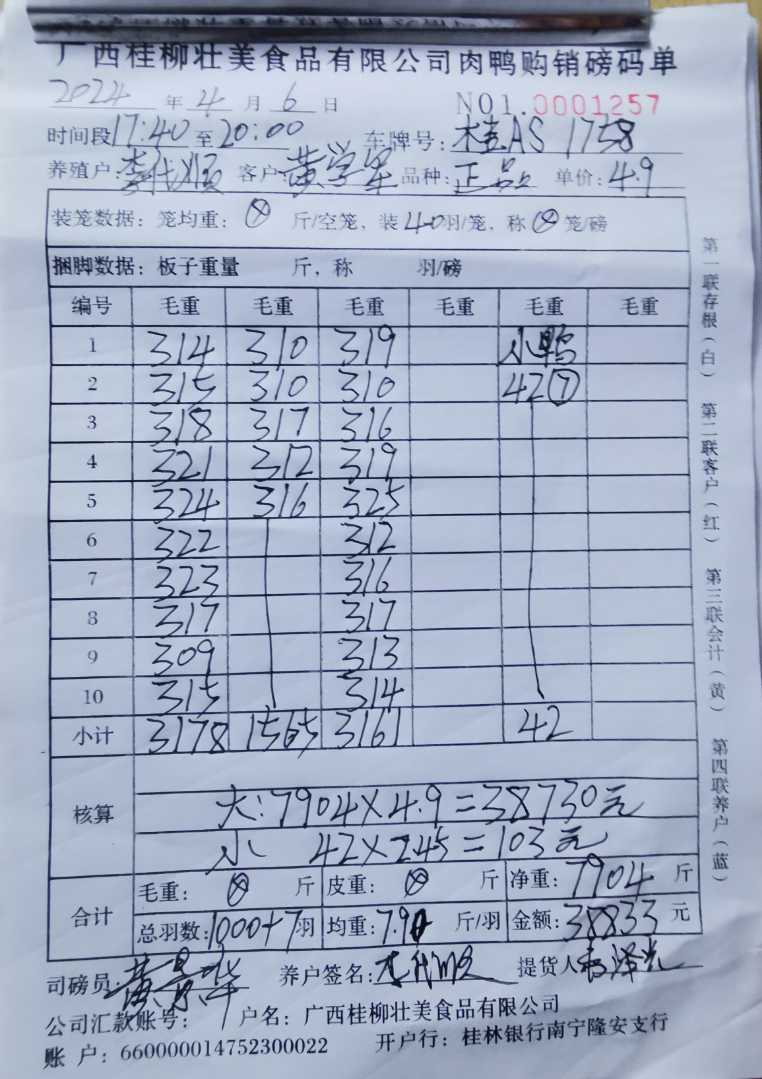 广西桂柳壮美食品有限公司肉鸭购销磅码单
2024年4月6日 NO1.0001257
时间段17:40至20:00 车牌号:桂AS 1758
养殖户:李代顺 客户:黄学军 品种:正品 单价:4.9
装笼数据:笼均重:⊗斤/空笼、装40羽/笼,称⊗笼/磅
捆脚数据:板子重量 斤,称 羽/磅
编号 毛重 毛重 毛重 毛重 毛重 毛重
1 314 310 319 小鸭
2 315 310 310 42⑦
3 318 317 316
4 321 312 319
5 324 316 325
6 322 312
7 323 316
8 317 317
9 309 313
10 315 314
小计 3178 1565 3161 42
核算 大:7904×4.9=38730元
小 42×2.45=103元
合计 毛重:⊗斤 皮重:⊗斤 净重:7904斤
总羽数:1000+7羽 均重:7.90斤/羽 金额:38833元
司磅员: 养户签名:李代顺 提货人
公司汇款账号: 户名:广西桂柳壮美食品有限公司
账 户:660000014752300022 开户行:桂林银行南宁隆安支行
第一联存根(白) 第二联客户(红) 第三联会计(黄) 第四联养户(蓝)